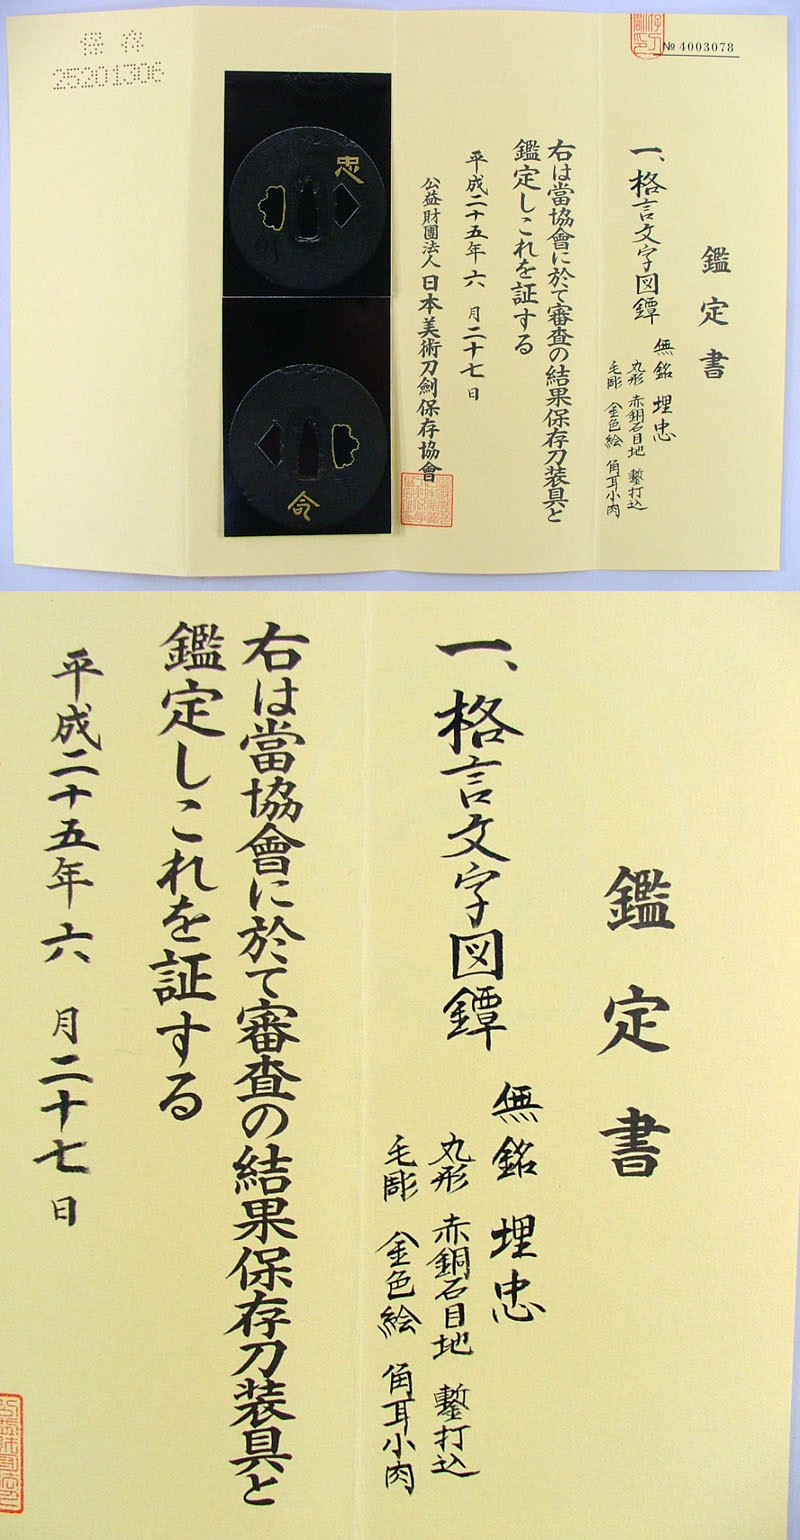 № 4003078
鑑定書
一、格言文字図鐔
無銘 埋忠
丸形 赤銅石目地 鏨打込
毛彫 金色絵 角耳小肉
右は當協會に於て審査の結果保存刀装具と
鑑定しこれを証する
平成二十五年六月二十七日
公益財團法人 日本美術刀劍保存協會
忠
命
保存
25201306
鑑定書
一、格言文字図鐔
無銘 埋忠
丸形 赤銅石目地 鏨打込
毛彫 金色絵 角耳小肉
右は當協會に於て審査の結果保存刀装具と
鑑定しこれを証する
平成二十五年六月二十七日